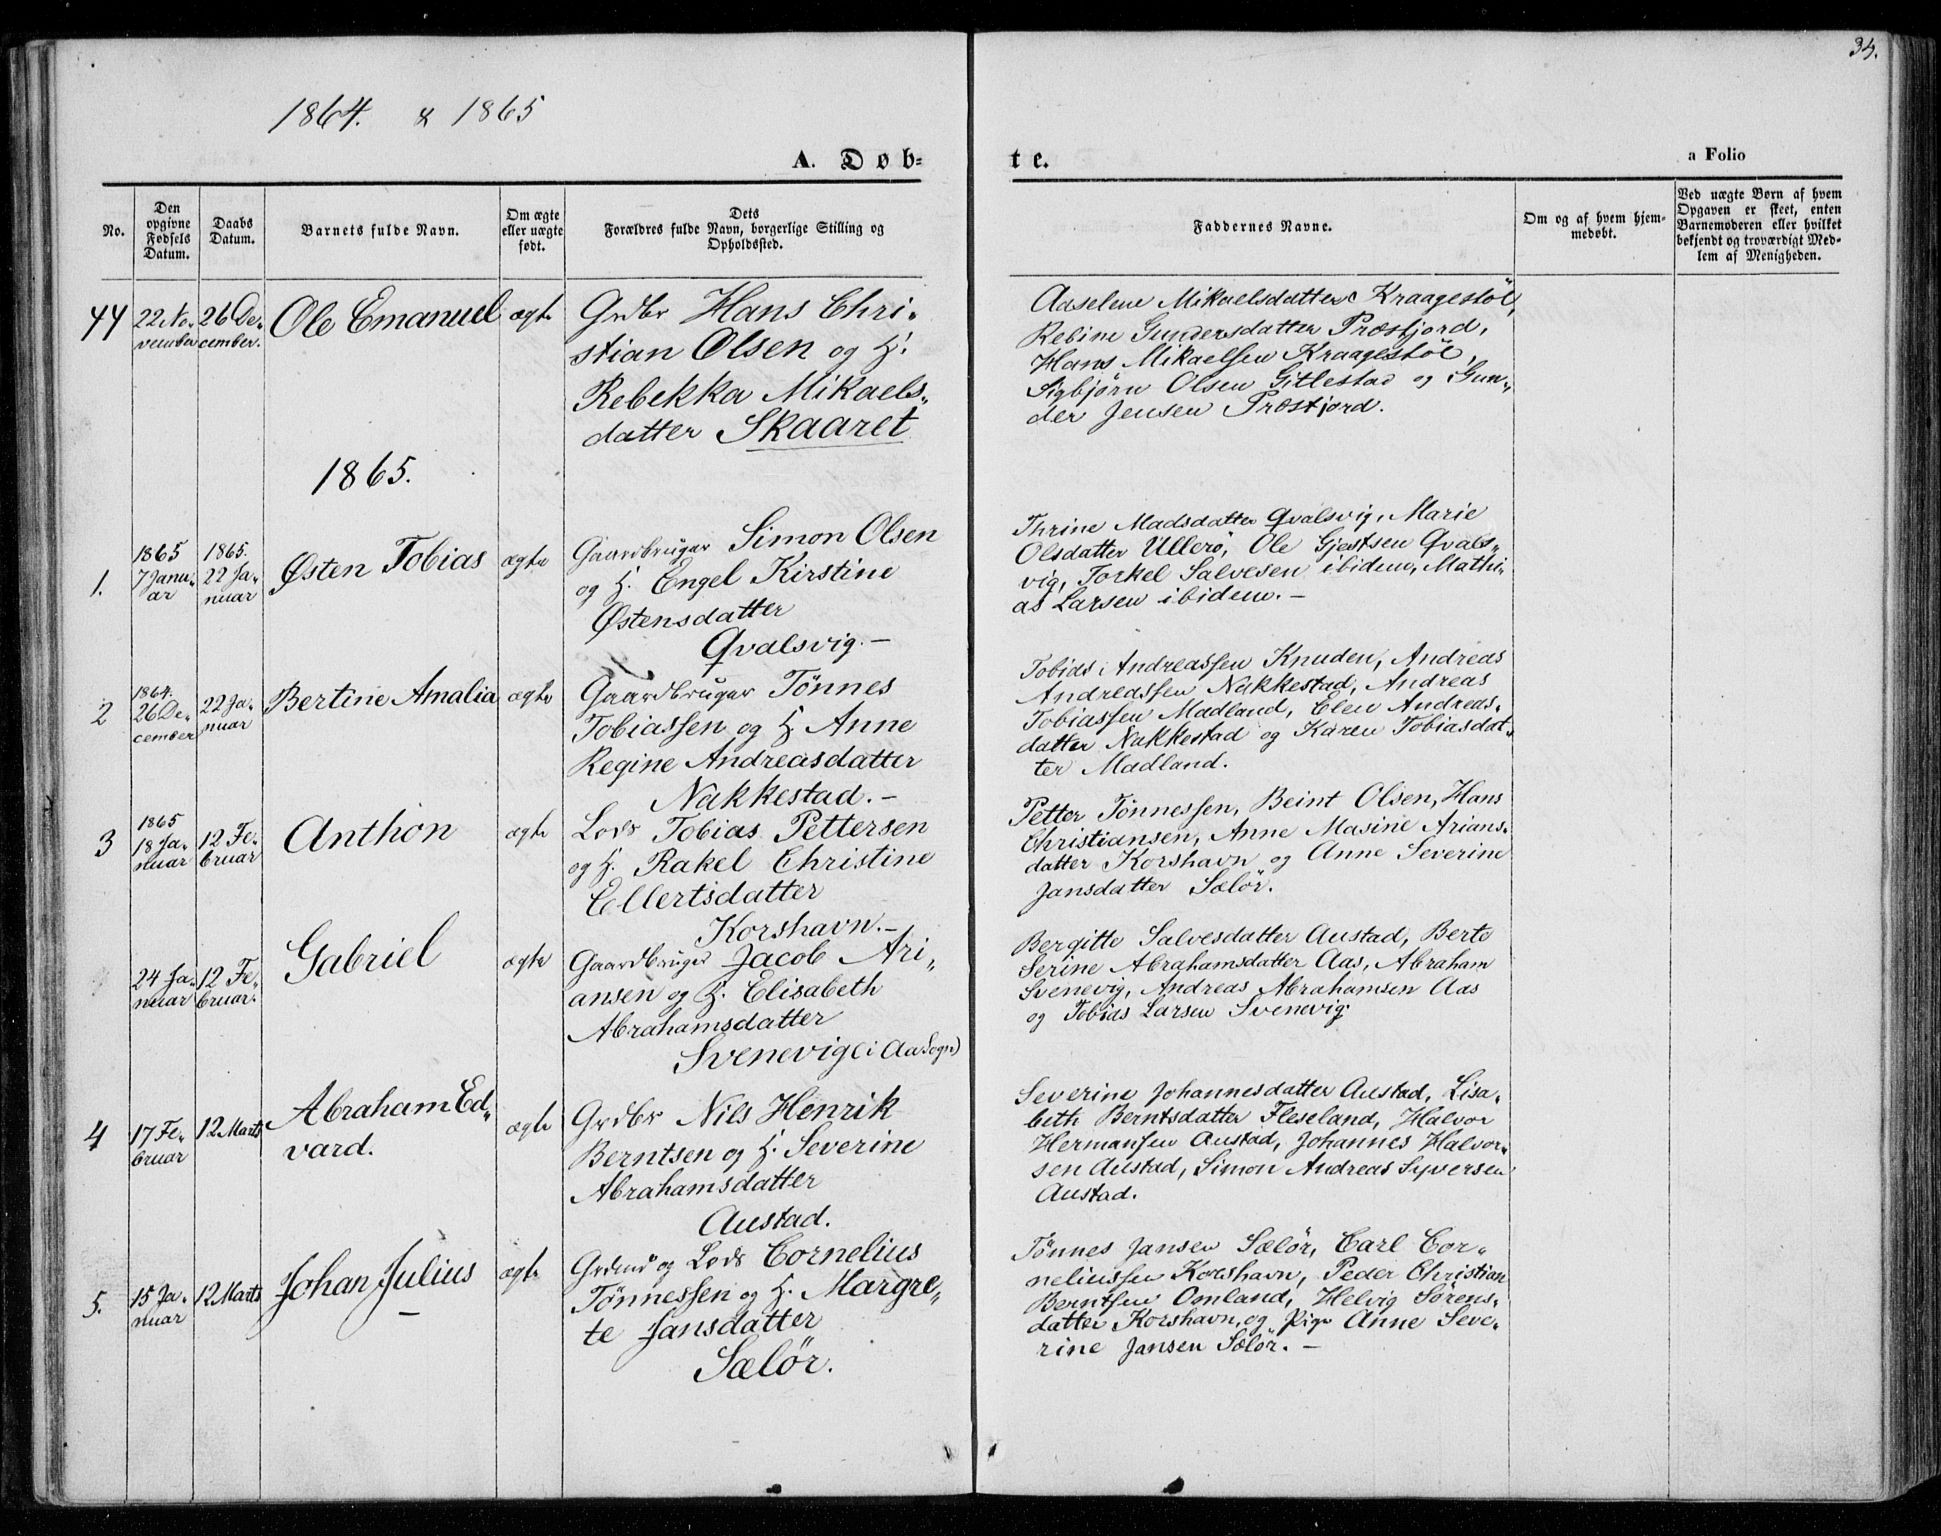 34.
1864. & 1865
A. Døb-
te.
a Folio
No.
Den
opgivne
Fødsels
Datum.
Daabs
Datum.
Barnets fulde Navn.
Om ægte
eller uægte
født.
Dets
Forældres fulde Navn, borgerlige Stilling og
Opholdssted.
Faddernes Navne.
Om og af hvem hjem-
medøbt.
Ved uægte Børn af hvem
Opgaven er skeet, enten
Barnemoderen eller hvilket
bekjendt og troværdigt Med-
lem af Menigheden.
44
22 No-
vember
26 De-
cember.
Ole Emanuel
ægte
Grdbr Hans Chri-
stian Olsen og H.
Rebekka Mikaels-
datter Skaaret
Aaselene Mikaelsdatter Kraagestøl,
Rebine Gundersdatter Præstfjord,
Hans Mikaelsen Kraagestøl,
Sigbjørn Olsen Gitlestad og Gun-
der Jensen Præstfjord.
1865.
1.
1865
7 Janu-
ar
1865.
22 Ja-
nuar
Østen Tobias
ægte
Gaardbruger Simon Olsen
og H. Engel Kirstine
Østensdatter
Qvalsvig. -
Thrine Madsdatter Qvalsvig, Marie
Olsdatter Ullerø, Ole Gjestsen Qvals-
vig, Torkel Salvesen ibidem, Mathi-
as Larsen ibidem. -
2
1864.
26 De-
cember
22 Ja-
nuar
Bertine Amalia
ægte
Gaardbruger Tønnes
Tobiassen og H. Anne
Regine Andreasdatter
Nakkestad. -
Tobias Andreassen Knuden, Andreas
Andreassen Nakkestad, Andreas
Tobiassen Madland, Elen Andreas-
datter Nakkestad og Karen Tobiasdat-
ter Madland.
3
1865
18 Ja-
nuar
12 Fe-
bruar
Anthon
ægte
Lods Tobias Pettersen
og H. Rakel Christine
Ellertsdatter
Korshavn. -
Petter Tønnessen, Beint Olsen, Hans
Christiansen, Anne Masine Arians-
datter Korshavn og Anne Severine
Jansdatter Sælør.
24 Ja-
nuar
12 Fe-
bruar.
Gabriel
ægte
Gaardbruger Jacob Ari-
ansen og H. Elisabeth
Abrahamsdatter
Svenevig (i Aa Sogn)
Bergitte Salvesdatter Austad, Berte
Serine Abrahamsdatter Aas, Abraham
Svenevig, Andreas Abrahamsen Aas
og Tobias Larsen Svenevig
4
17 Fe-
bruar
12 Marts
Abraham Ed-
vard.
ægte
Grdbr Nils Henrik
Berntsen og H. Severine
Abrahamsdatter
Austad.
Severine Johannesdatter Austad, Lisa-
beth Berntsdatter Fleseland, Halvor
Hermansen Austad, Johannes Halvor-
sen Austad, Simon Andreas Syversen
Austad.
5.
15 Ja-
nuar
12 Marts
Johan Julius
ægte
og Lods Cornelius
Tønnessen og H. Margre-
te Jansdatter
Sælør.
Tønnes Jansen Sælør, Carl Cor-
neliussen Korshavn, Peder Christian
Berntsen Omland, Helvig Sørens-
datter Korshavn, og Pige Anne Seve-
rine Jansen Sælør. -